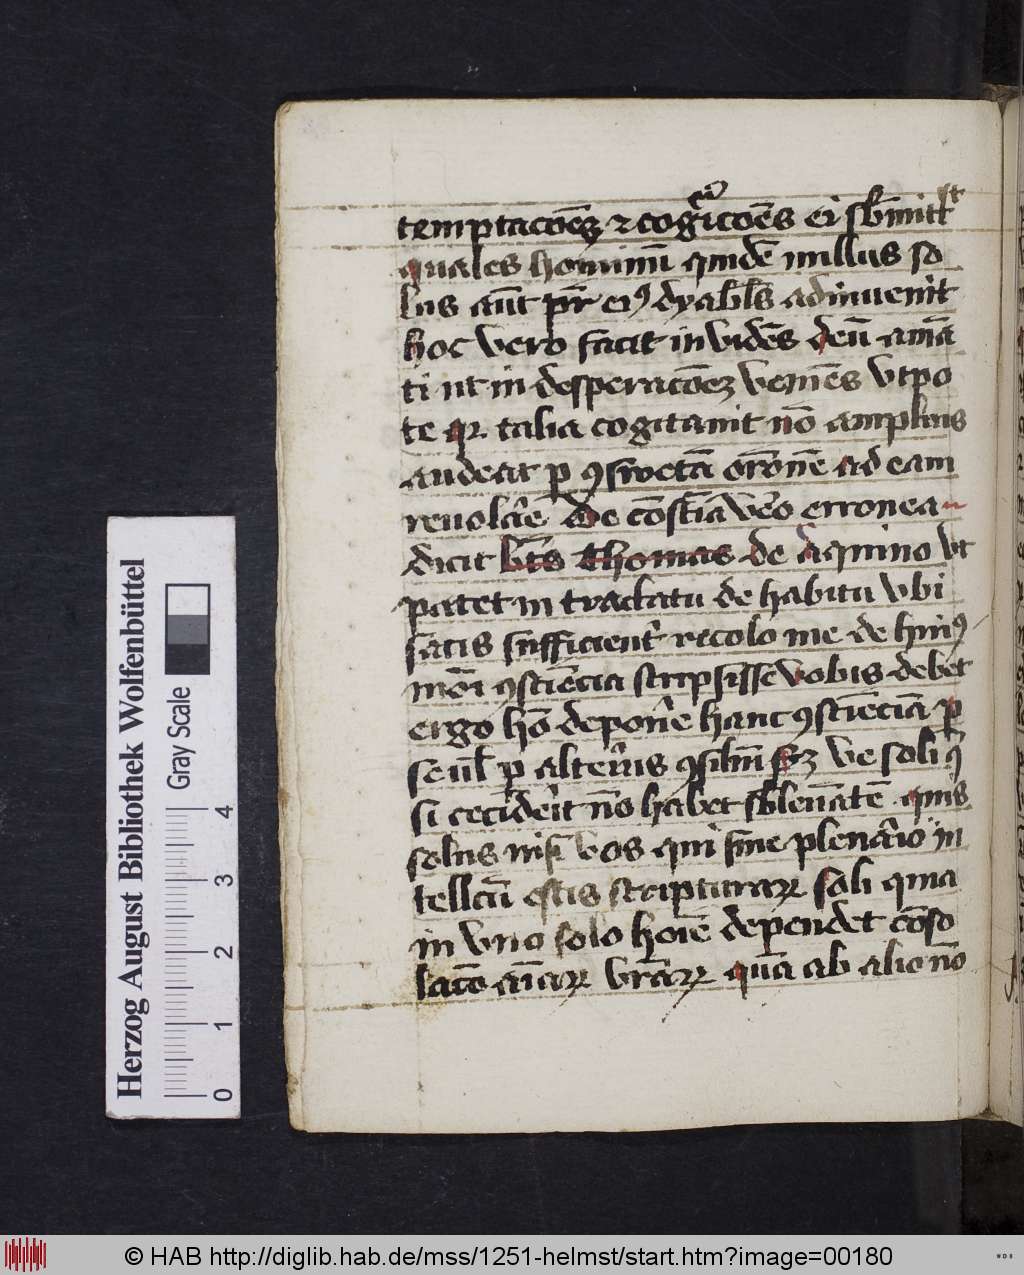 temptacōeꝫ ⁊ cogͥcoēs ei sb̄mittt
quales hominū quidē nullus so
lus aūt pr̄ eiꝰ dyabl̄s adinuenit
hoc vero facit invidēs deū amā
ti ut in desperacōeꝫ veniēs vtpo
te qꝛ talia cogitauit nō amplius
audeat p ꝯswetā orōnē ad eam
reuolar̄e De cōsciā vēo erronea
dicit bt̄s thomas de aquino vt
patet in tractatu de habitu vbi
satis sufficient᷑ recolo me de huiꝰ
mōi ꝯsciēcia scripsisse vobis debet
ergo hō depon̄e hanc ꝯsciēciā p
se ul̄ p alterius ꝯsiliū sꝫ ve soli qꝰ
si cecidērit nō habet sb̄leuātē quis
solus nisi vos qui sine plenārio in
tellcū estis scripturaꝝ soli quia
in vno solo hoīe dependet cōso
lacō aīaꝝ vr̄aꝝ quā ab alio nō
Herzog August Bibliothek Wolfenbüttel
Gray Scale
0 1 2 3 4
© HAB http://diglib.hab.de/mss/1251-helmst/start.htm?image=00180